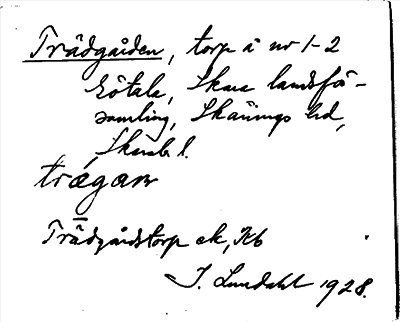 Trädgården, torp å nr 1-2
Götala, Skara landsför-
samling, Skånings hd,
Skarab. l.
trǽgaɴ
Trädgårdstorp ek, Kb
I. Lundahl 1928.